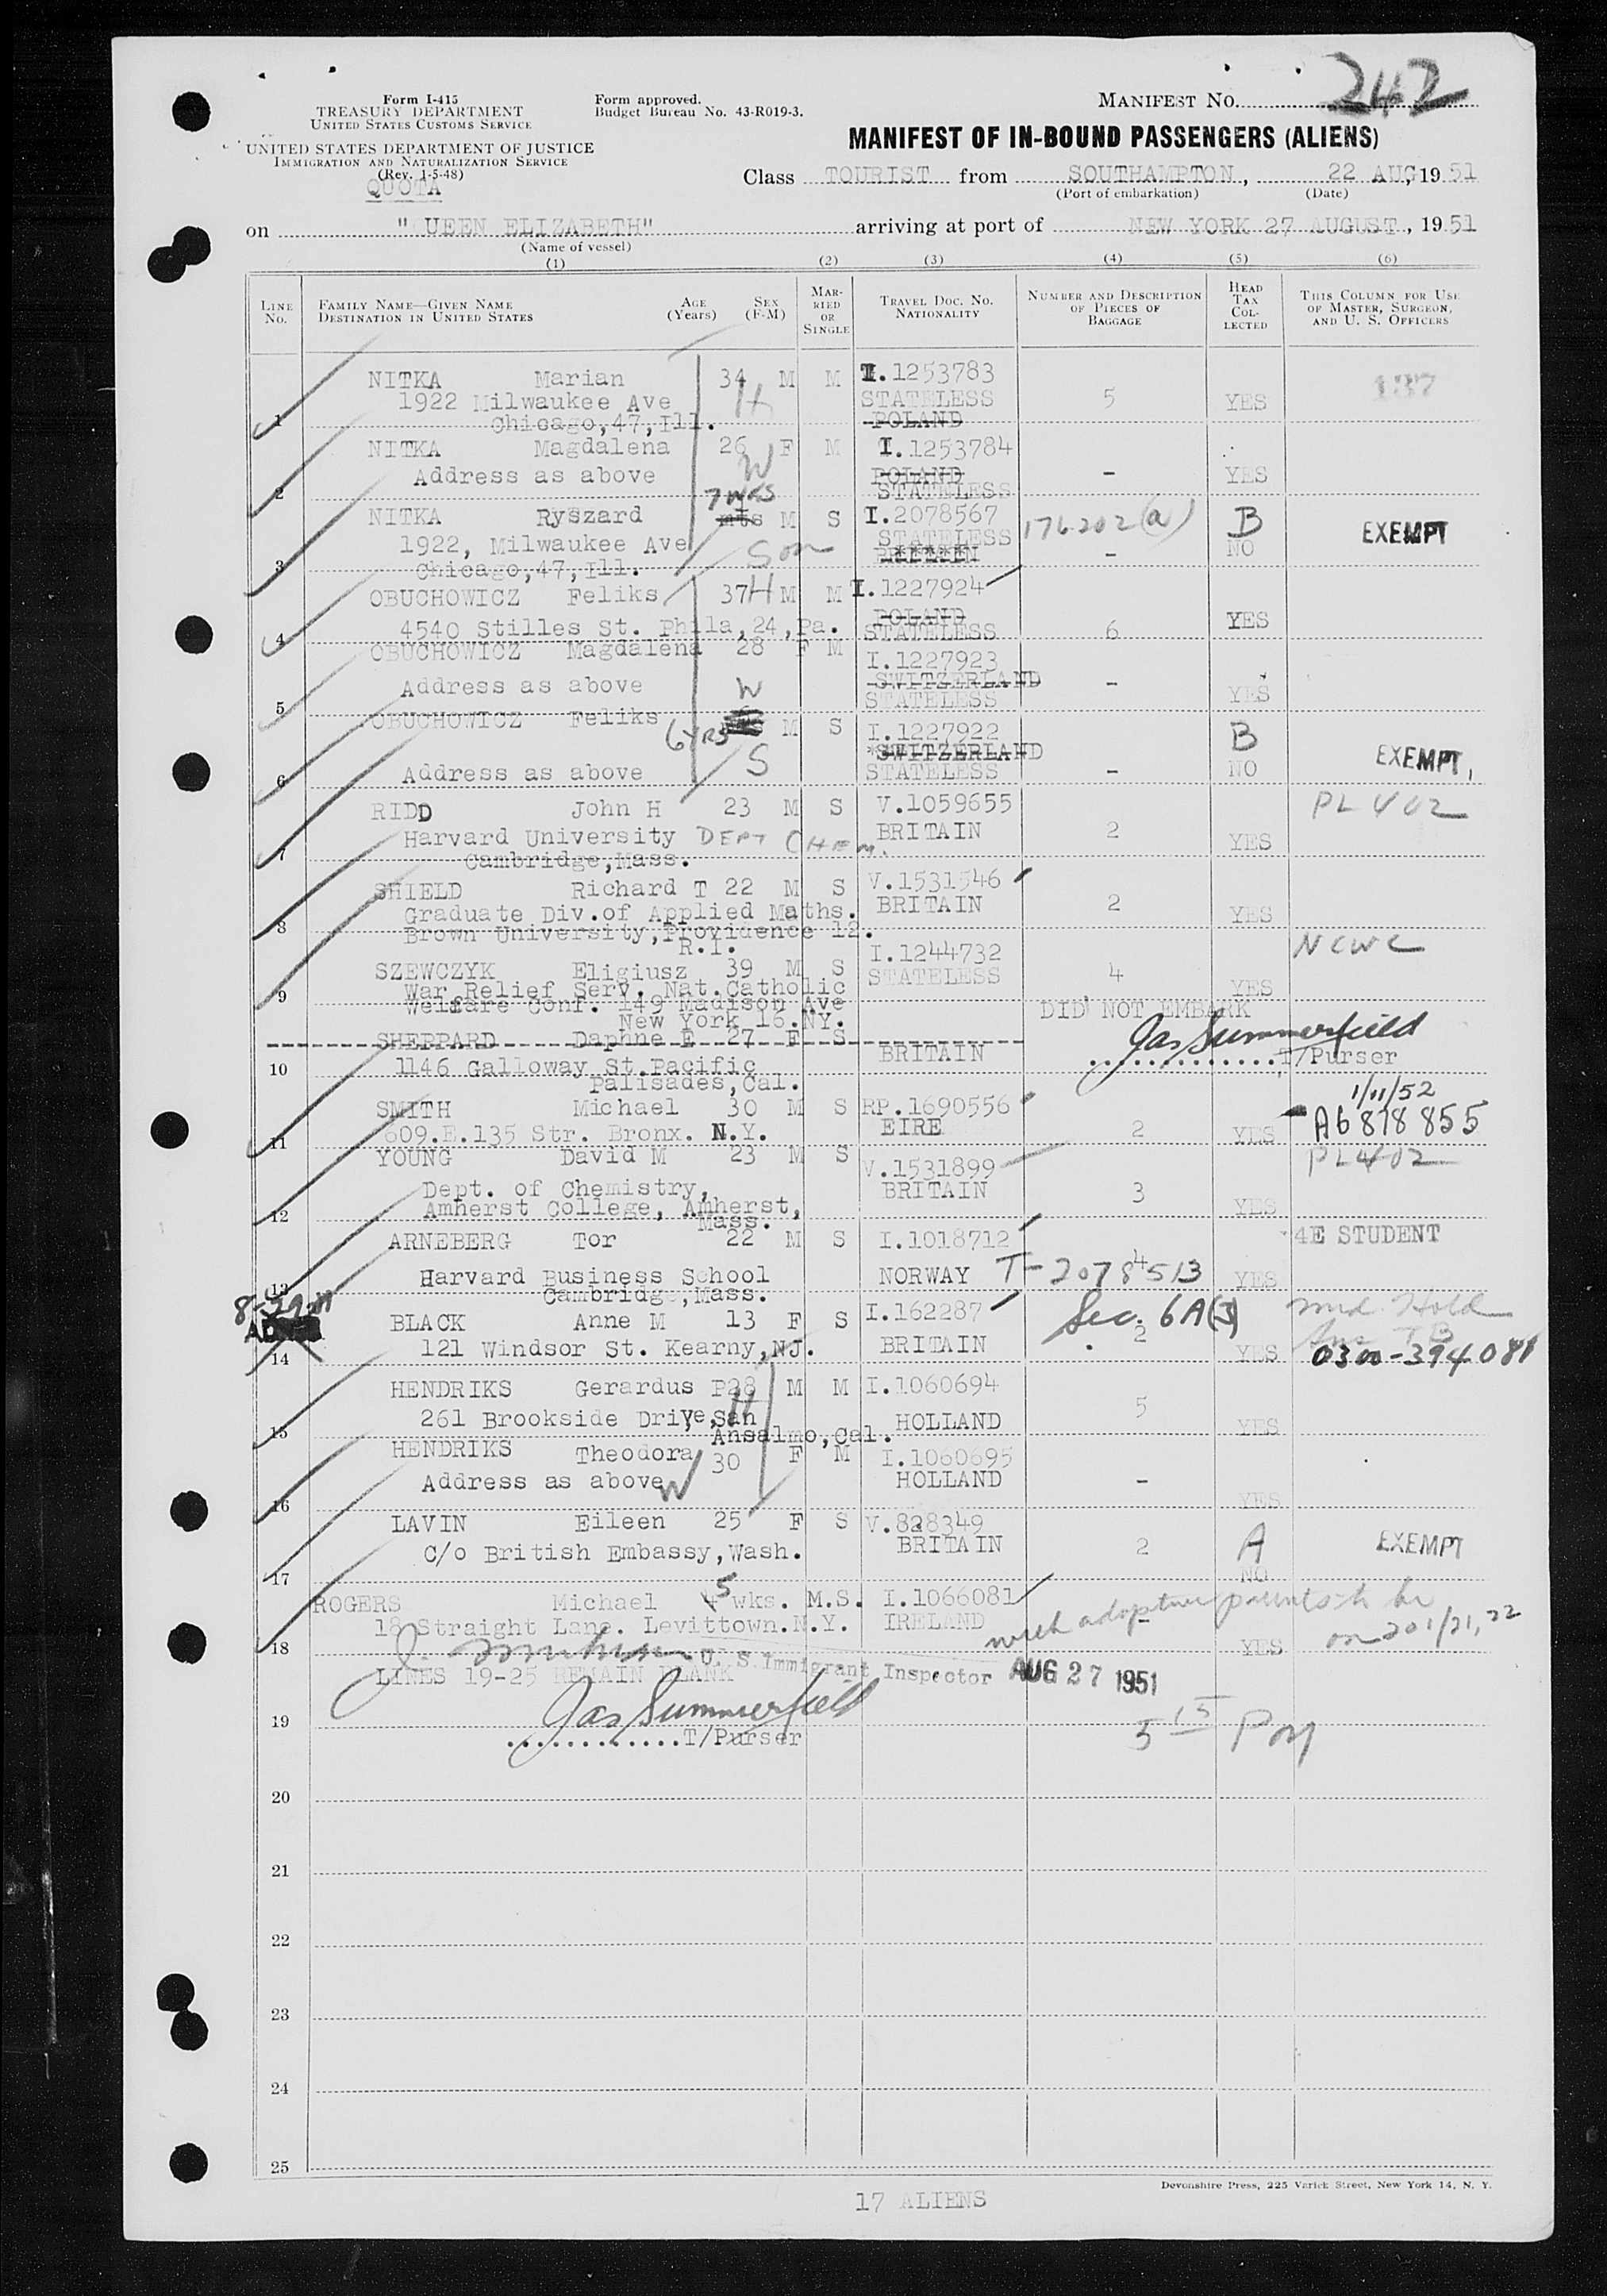 Form I-415
TREASURY DEPARTMENT
UNITED STATES CUSTOMS SERVICE
UNITED STATES DEPARTMENT OF JUSTICE
IMMIGRATION AND NATURALIZATION SERVICE
(Rev. 1-5-48)
QUOTA
Form approved.
Budget Bureau No. 43-R019-3.
MANIFEST NO. 242
MANIFEST OF IN-BOUND PASSENGERS (ALIENS)
Class TOURIST from SOUTHAMPTON, 22 AUG, 19 51
(Port of embarkation) (Date)
on " UEEN ELIZABETH" arriving at port of NEW YORK 27 AUGUST, 19 51
(Name of vessel)
(1) (2) (3) (4) (5) (6)
LINE NO. FAMILY NAME—GIVEN NAME DESTINATION IN UNITED STATES AGE (Years) SEX (F-M) MARRIED OR SINGLE TRAVEL DOC. NO. NATIONALITY NUMBER AND DESCRIPTION OF PIECES OF BAGGAGE HEAD TAX COLLECTED THIS COLUMN FOR USE OF MASTER, SURGEON, AND U. S. OFFICERS
NITKA Marian 34 M M I.1253783
1922 Milwaukee Ave H STATELESS 5 YES
1 Chicago,47,Ill. POLAND
NITKA Magdalena 26 F M I.1253784
Address as above W POLAND - YES
2 STATELESS
7 yrs
NITKA Ryszard mts M S I.2078567 176.202(a) B EXEMPT
1922, Milwaukee Ave Son STATELESS - NO
3 Chicago,47,Ill.
OBUCHOWICZ Feliks 37 H M M I.1227924
POLAND YES
4 4540 Stilles St. Phila,24,Pa. STATELESS 6
OBUCHOWICZ Magdalena 28 F M I.1227923
Address as above W SWITZERLAND - YES
5 STATELESS
OBUCHOWICZ Feliks 6 yrs M S I.1227922 B
S SWITZERLAND EXEMPT
6 Address as above STATELESS - NO
RIDD John H 23 M S V.1059655 PL 402
7 Harvard University DEPT CHEM. BRITAIN 2 YES
Cambridge,Mass.
SHIELD Richard T 22 M S V.1531546
8 Graduate Div.of Applied Maths. BRITAIN 2 YES
Brown University,Providence 12.
R.I. NCWC
I.1244732
SZEWCZYK Eligiusz 39 M S STATELESS 4
9 War Relief Serv. Nat.Catholic YES
Welfare Conf. 149 Madison Ave DID NOT EMBARK
New York 16.NY.
SHEPPARD Daphne E 27 F S Jas Summerfield
10 1146 Galloway St.Pacific BRITAIN T/Purser
Palisades,Cal.
1/11/52
SMITH Michael 30 M S RP.1690556 A6878855
11 609.E.135 Str. Bronx. N.Y. EIRE 2 YES
YOUNG David M 23 M S V.1531899 PL 402
Dept. of Chemistry, BRITAIN 3 YES
12 Amherst College, Amherst,
Mass.
ARNEBERG Tor 22 M S I.1018712 4E STUDENT
13 Harvard Business School NORWAY T-2078513 YES
4
Cambridge,Mass.
8-29-51
BLACK Anne M 13 F S I.162287 Sec. 6A(3) Med. Hold
14 121 Windsor St. Kearny,NJ. BRITAIN 2 YES 0300-394081
HENDRIKS Gerardus P 28 M M I.1060694
15 261 Brookside Drive,San H HOLLAND 5 YES
Anselmo,Cal.
HENDRIKS Theodora 30 F M I.1060695
16 Address as above W HOLLAND - YES
LAVIN Eileen 25 F S V.828349
17 c/o British Embassy,Wash. BRITAIN 2 A NO EXEMPT
ROGERS Michael 5 wks. M.S. I.1066081
18 18 Straight Lane. Levittown.N.Y. IRELAND - YES with adoptive parents on 201/21,22
U. S. Immigrant Inspector AUG 27 1951
LINES 19-25 REMAIN BLANK
19 Jas Summerfield
T/Purser
5 15 Pm
20
21
22
23
24
25
Devonshire Press, 225 Varick Street, New York 14, N. Y.
17 ALIENS